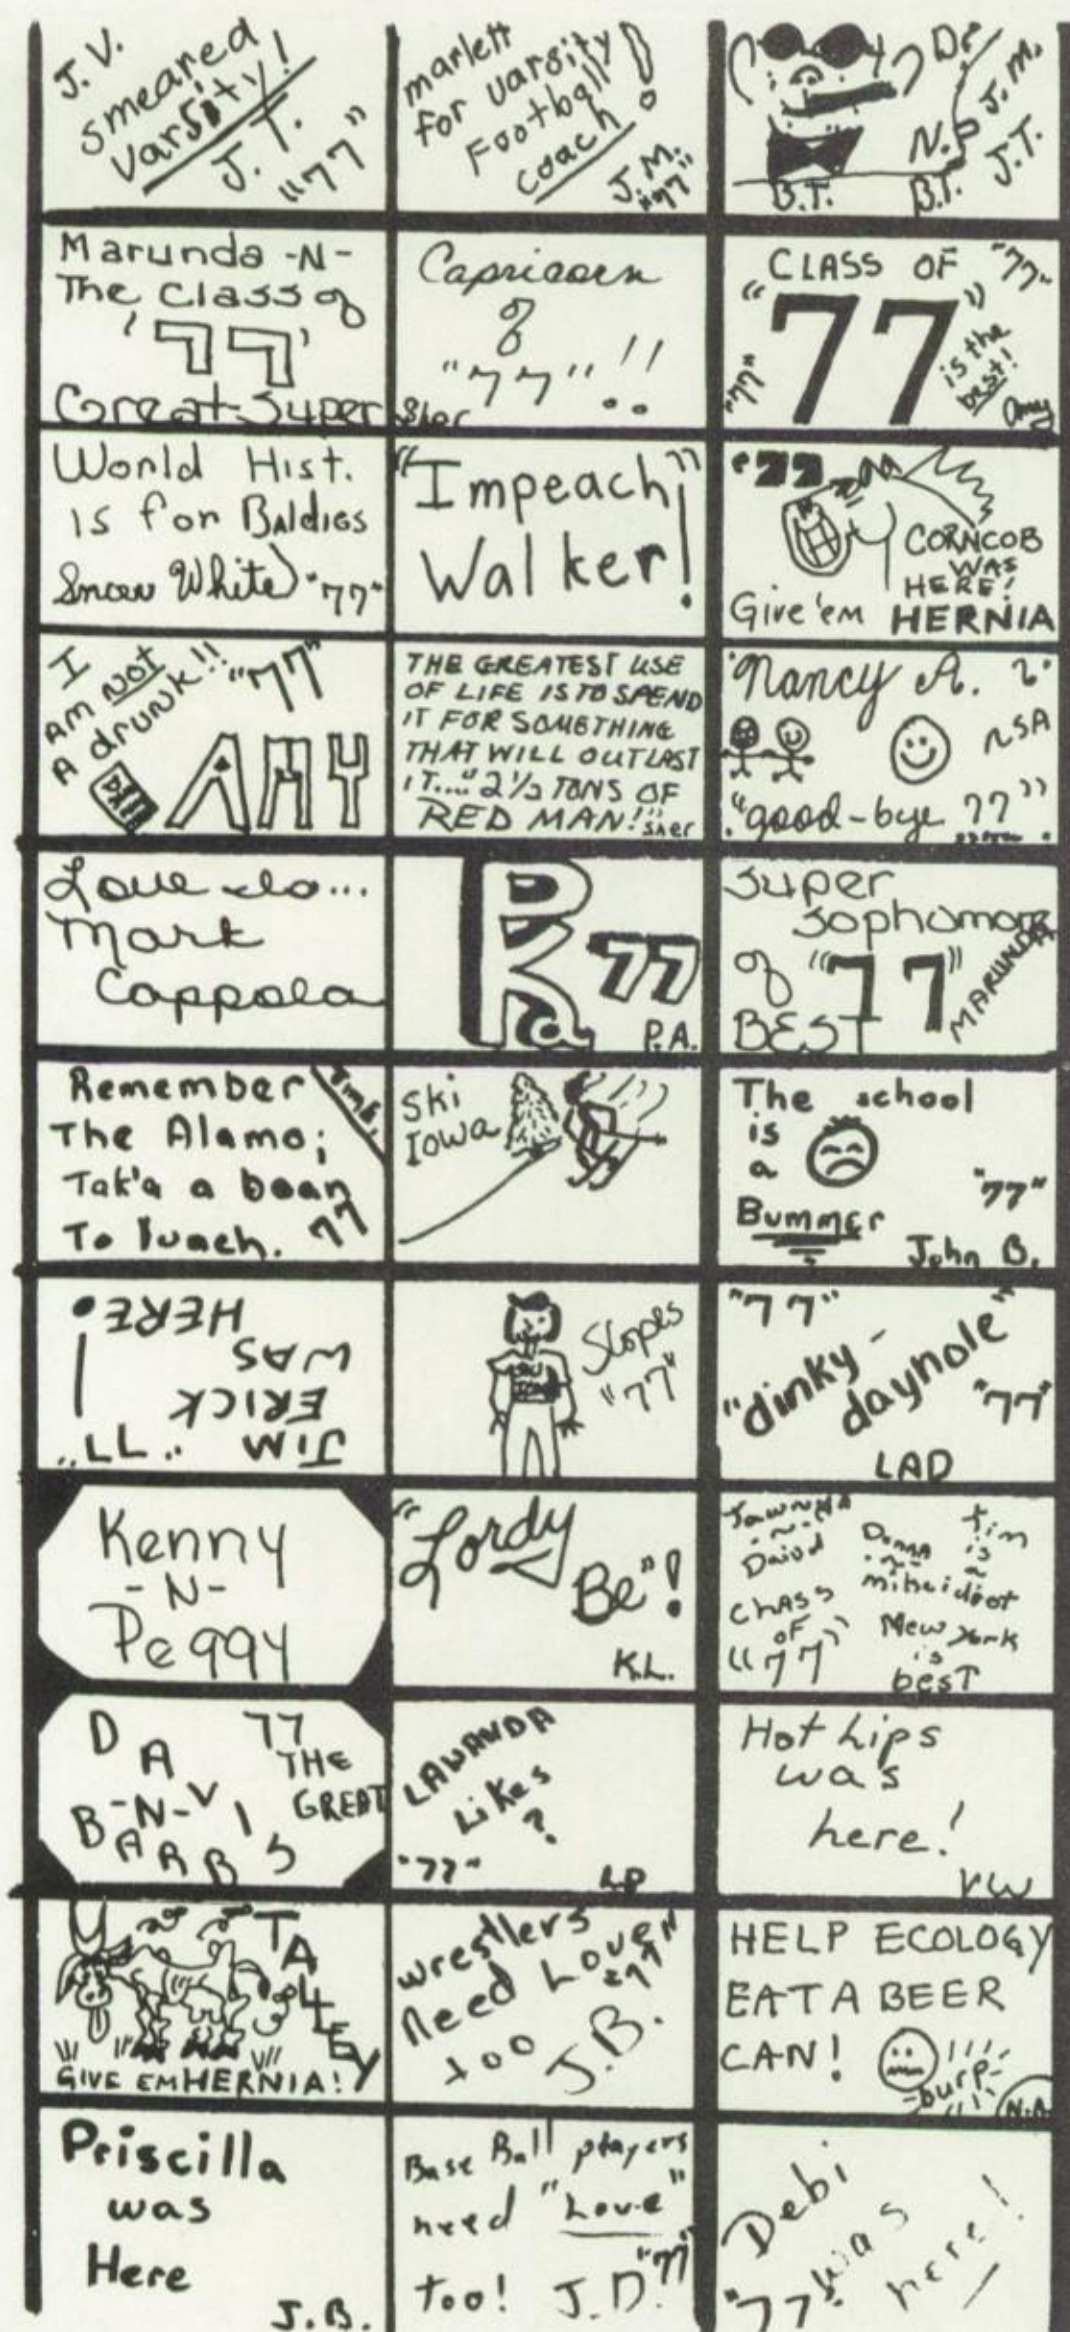 J.V.
smeared
varsity!
J.T.
"77"
marlett
for varsity
Football
coach!
J.M.
"77"
D.
J.M.
N.P.
J.T.
B.T.
B.T.
Marunda -N-
The class of
'77'
Great Super
Capricorn
of
"77"!!
Sher
CLASS OF "77"
"77"
"77"
is the
best!
Amy
World Hist.
is for Baldies
Snow White "77"
"Impeach"
Walker!
'77
CORNCOB
WAS
HERE!
Give 'em HERNIA
I
AM NOT
A drunk!! "77"
AMY
THE GREATEST USE
OF LIFE IS TO SPEND
IT FOR SOMETHING
THAT WILL OUTLAST
IT...." 2 1/2 TONS OF
RED MAN!" sher
Nancy A.
"good-bye 77"
Love to...
Mark
Coppola
77
P.A.
Super
Sophomore
of "77"
BEST
MARUNDA
Remember
The Alamo;
Tak'a a bean
To lunch. 77
Ski
Iowa
The school
is
a
Bummer
"77"
John B.
JIM "77"
ERICK
WAS
HERE!
Slopes
"77"
"77"
"dinky-
daynole"
"77"
LAD
Kenny
-N-
Peggy
"Lordy
Be"!
K.L.
David
CLASS
OF
"77"
Tim
is
New York
is
best
DAVIS
-N-
BARB
77
THE
GREAT
LAWANDA
Likes
?
"77"
LD
Hot Lips
was
here!
VW
TALLEY
GIVE EM HERNIA!
wrestlers
need Love
too
"77"
J.B.
HELP ECOLOGY
EAT A BEER
CAN!
-burp-
N.A.
Priscilla
was
Here
J.B.
Base Ball players
need "Love"
too! J.D. "77"
Debi
was
here!
"77"